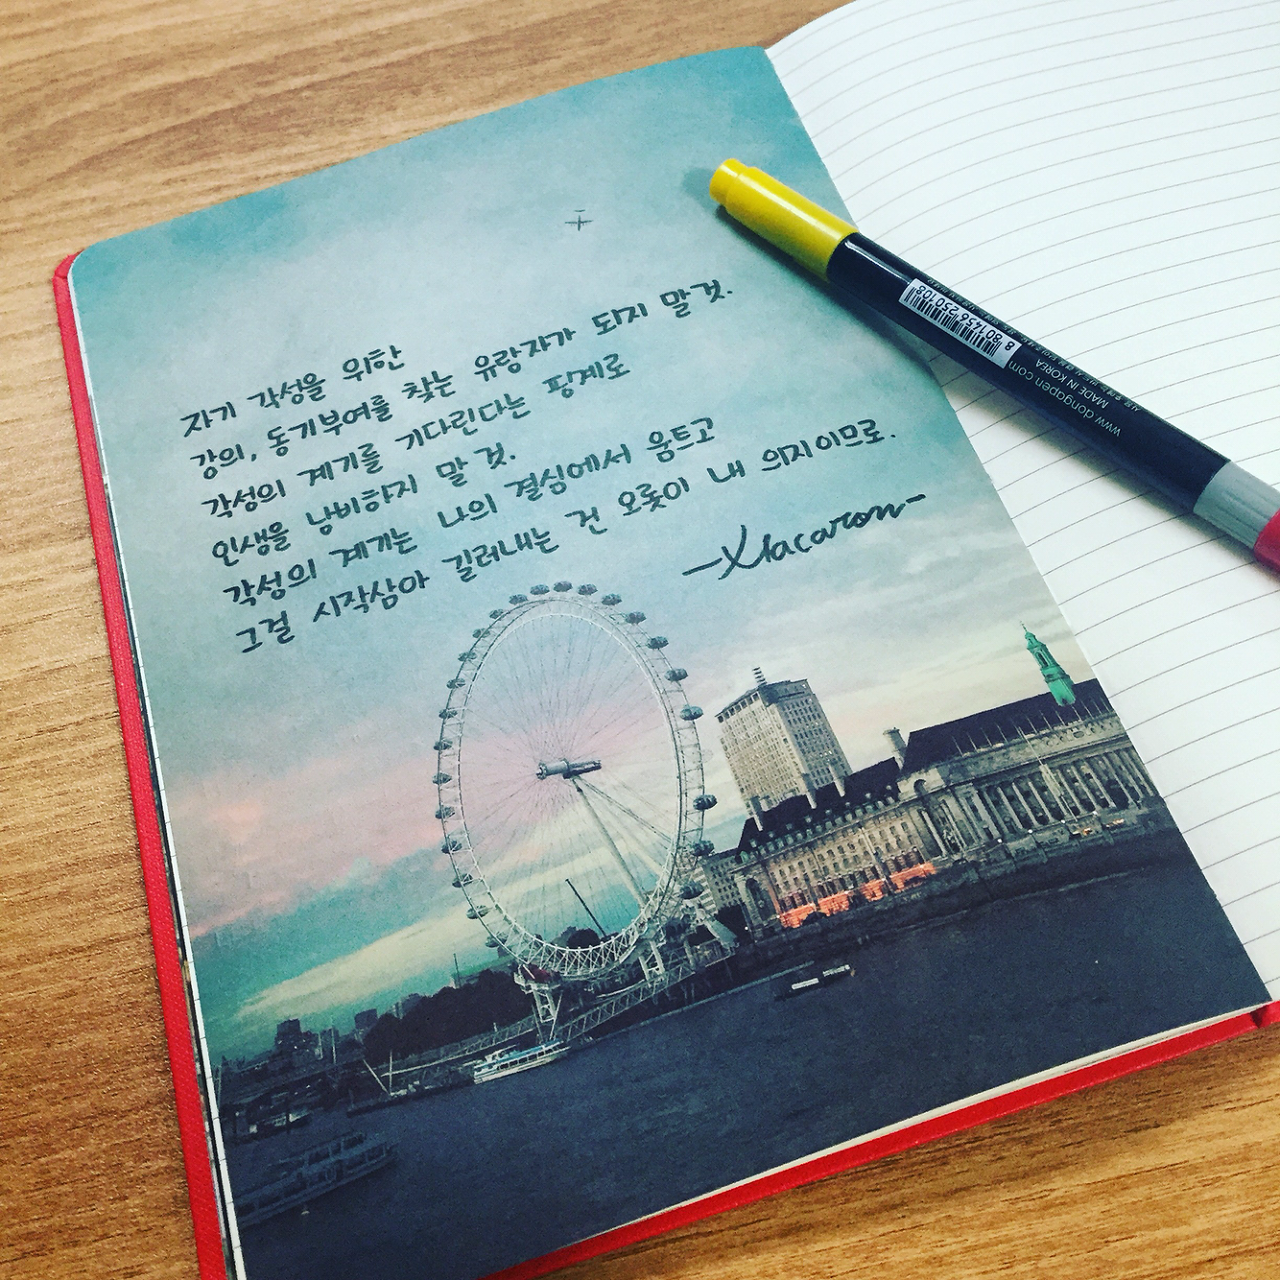 자기 각성을 위한
강의, 동기부여를 찾는 유랑자가 되지 말 것.
각성의 계기를 기다린다는 핑계로
인생을 낭비하지 말 것.
각성의 계기는 나의 결심에서 움트고
그걸 시작삼아 길러내는 건 오롯이 내 의지이므로.
-Macaron-
8 801456 250108
MADE IN KOREA
www.dongapen.com